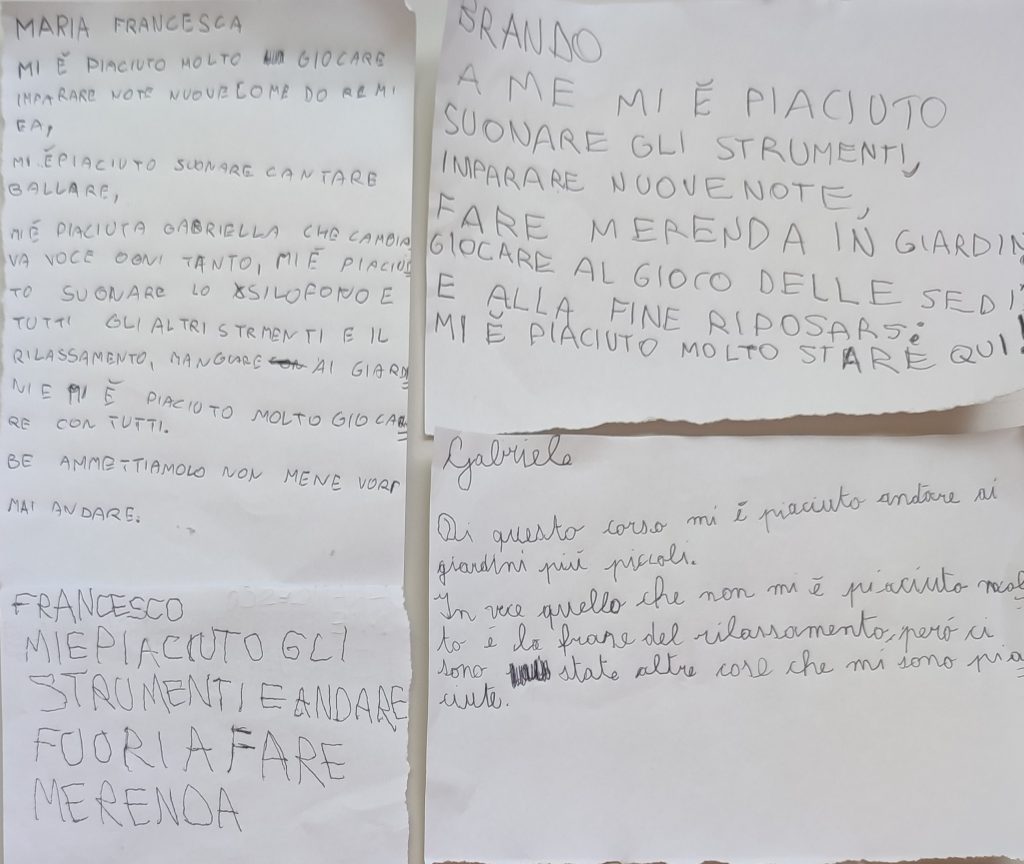 MARIA FRANCESCA
MI È PIACIUTO MOLTO GIOCARE
IMPARARE NOTE NUOVE COME DO RE MI
FA,
MI È PIACIUTO SUONARE CANTARE
BALLARE,
MI È PIACIUTA GABRIELLA CHE CAMBIA
VA VOCE OGNI TANTO, MI È PIACIU
TO SUONARE LO XSILOFONO E
TUTTI GLI ALTRI STRMENTI E IL
RILASSAMENTO, MANGIARE AI GIARDI
NI E MI È PIACIUTO MOLTO GIOCA
RE CON TUTTI.
BE AMMETTIAMOLO NON MENE VORI
MAI ANDARE.
FRANCESCO
MIEPIACIUTO GLI
STRUMENTI E ANDARE
FUORI A FARE
MERENDA
BRANDO
A ME MI È PIACIUTO
SUONARE GLI STRUMENTI,
IMPARARE NUOVE NOTE,
FARE MERENDA IN GIARDIN
GIOCARE AL GIOCO DELLE SEDI
E ALLA FINE RIPOSARSI
MI È PIACIUTO MOLTO STARE QUI!
Gabriele
Di questo corso mi è piaciuto andare ai
giardini più piccoli.
In vece quello che non mi è piaciuto mol
to è la frase del rilassamento, però ci
sono state altre cose che mi sono pia
ciute.